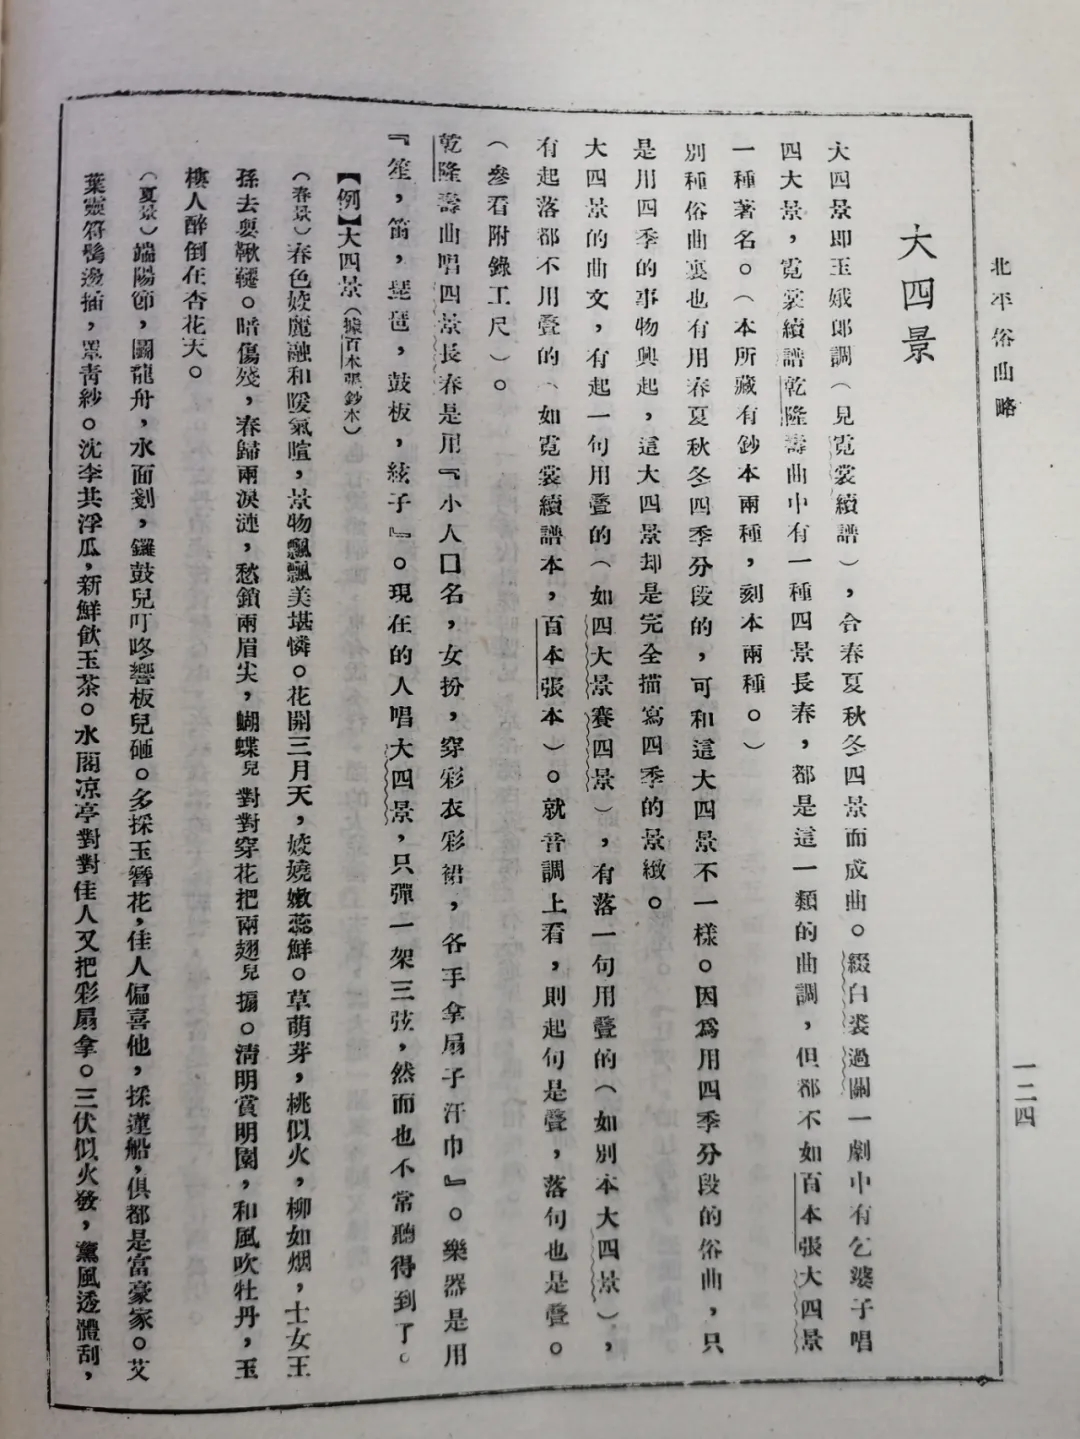 北平俗曲略
一二四
大四景
大四景即玉娥郎調（見霓裳續譜），合春夏秋冬四景而成曲。綴白裘過關一劇中有乞婆子唱
四大景，霓裳續譜乾隆壽曲中有一種四景長春，都是這一類的曲調，但都不如百本張大四景
一種著名。（本所藏有鈔本兩種，刻本兩種。）
別種俗曲裏也有用春夏秋冬四季分段的，可和這大四景不一樣。因爲用四季分段的俗曲，只
是用四季的事物興起，這大四景却是完全描寫四季的景緻。
大四景的曲文，有起一句用疊的（如四大景賽四景），有落一句用疊的（如別本大四景），
有起落都不用疊的（如霓裳續譜本，百本張本）。就音調上看，則起句是疊，落句也是疊。
（參看附錄工尺）。
乾隆壽曲唱四景長春是用『小人口名，女扮，穿彩衣彩裙，各手拿扇子汗巾』。樂器是用
『笙，笛，琵琶，鼓板，絃子』。現在的人唱大四景，只彈一架三弦，然而也不常聽得到了。
【例】大四景（據百本張鈔本）
（春景）春色姣麗融和暖氣暄，景物飄飄美堪憐。花開三月天，姣嬈嫩蕊鮮。草萌芽，桃似火，柳如烟，士女王
孫去耍鞦韆。暗傷殘，春歸兩淚漣，愁鎖兩眉尖，蝴蝶兒對對穿花把兩翅兒搧。清明賞明園，和風吹牡丹，玉
樓人醉倒在杏花天。
（夏景）端陽節，鬭龍舟，水面剗，鑼鼓兒叮咚響板兒砸。多採玉簪花，佳人偏喜他，採蓮船，俱都是富豪家。艾
葉靈符鬢邊插，罩青紗。沈李共浮瓜，新鮮飲玉茶。水閣凉亭對對佳人又把彩扇拿。三伏似火發，薰風透體刮，